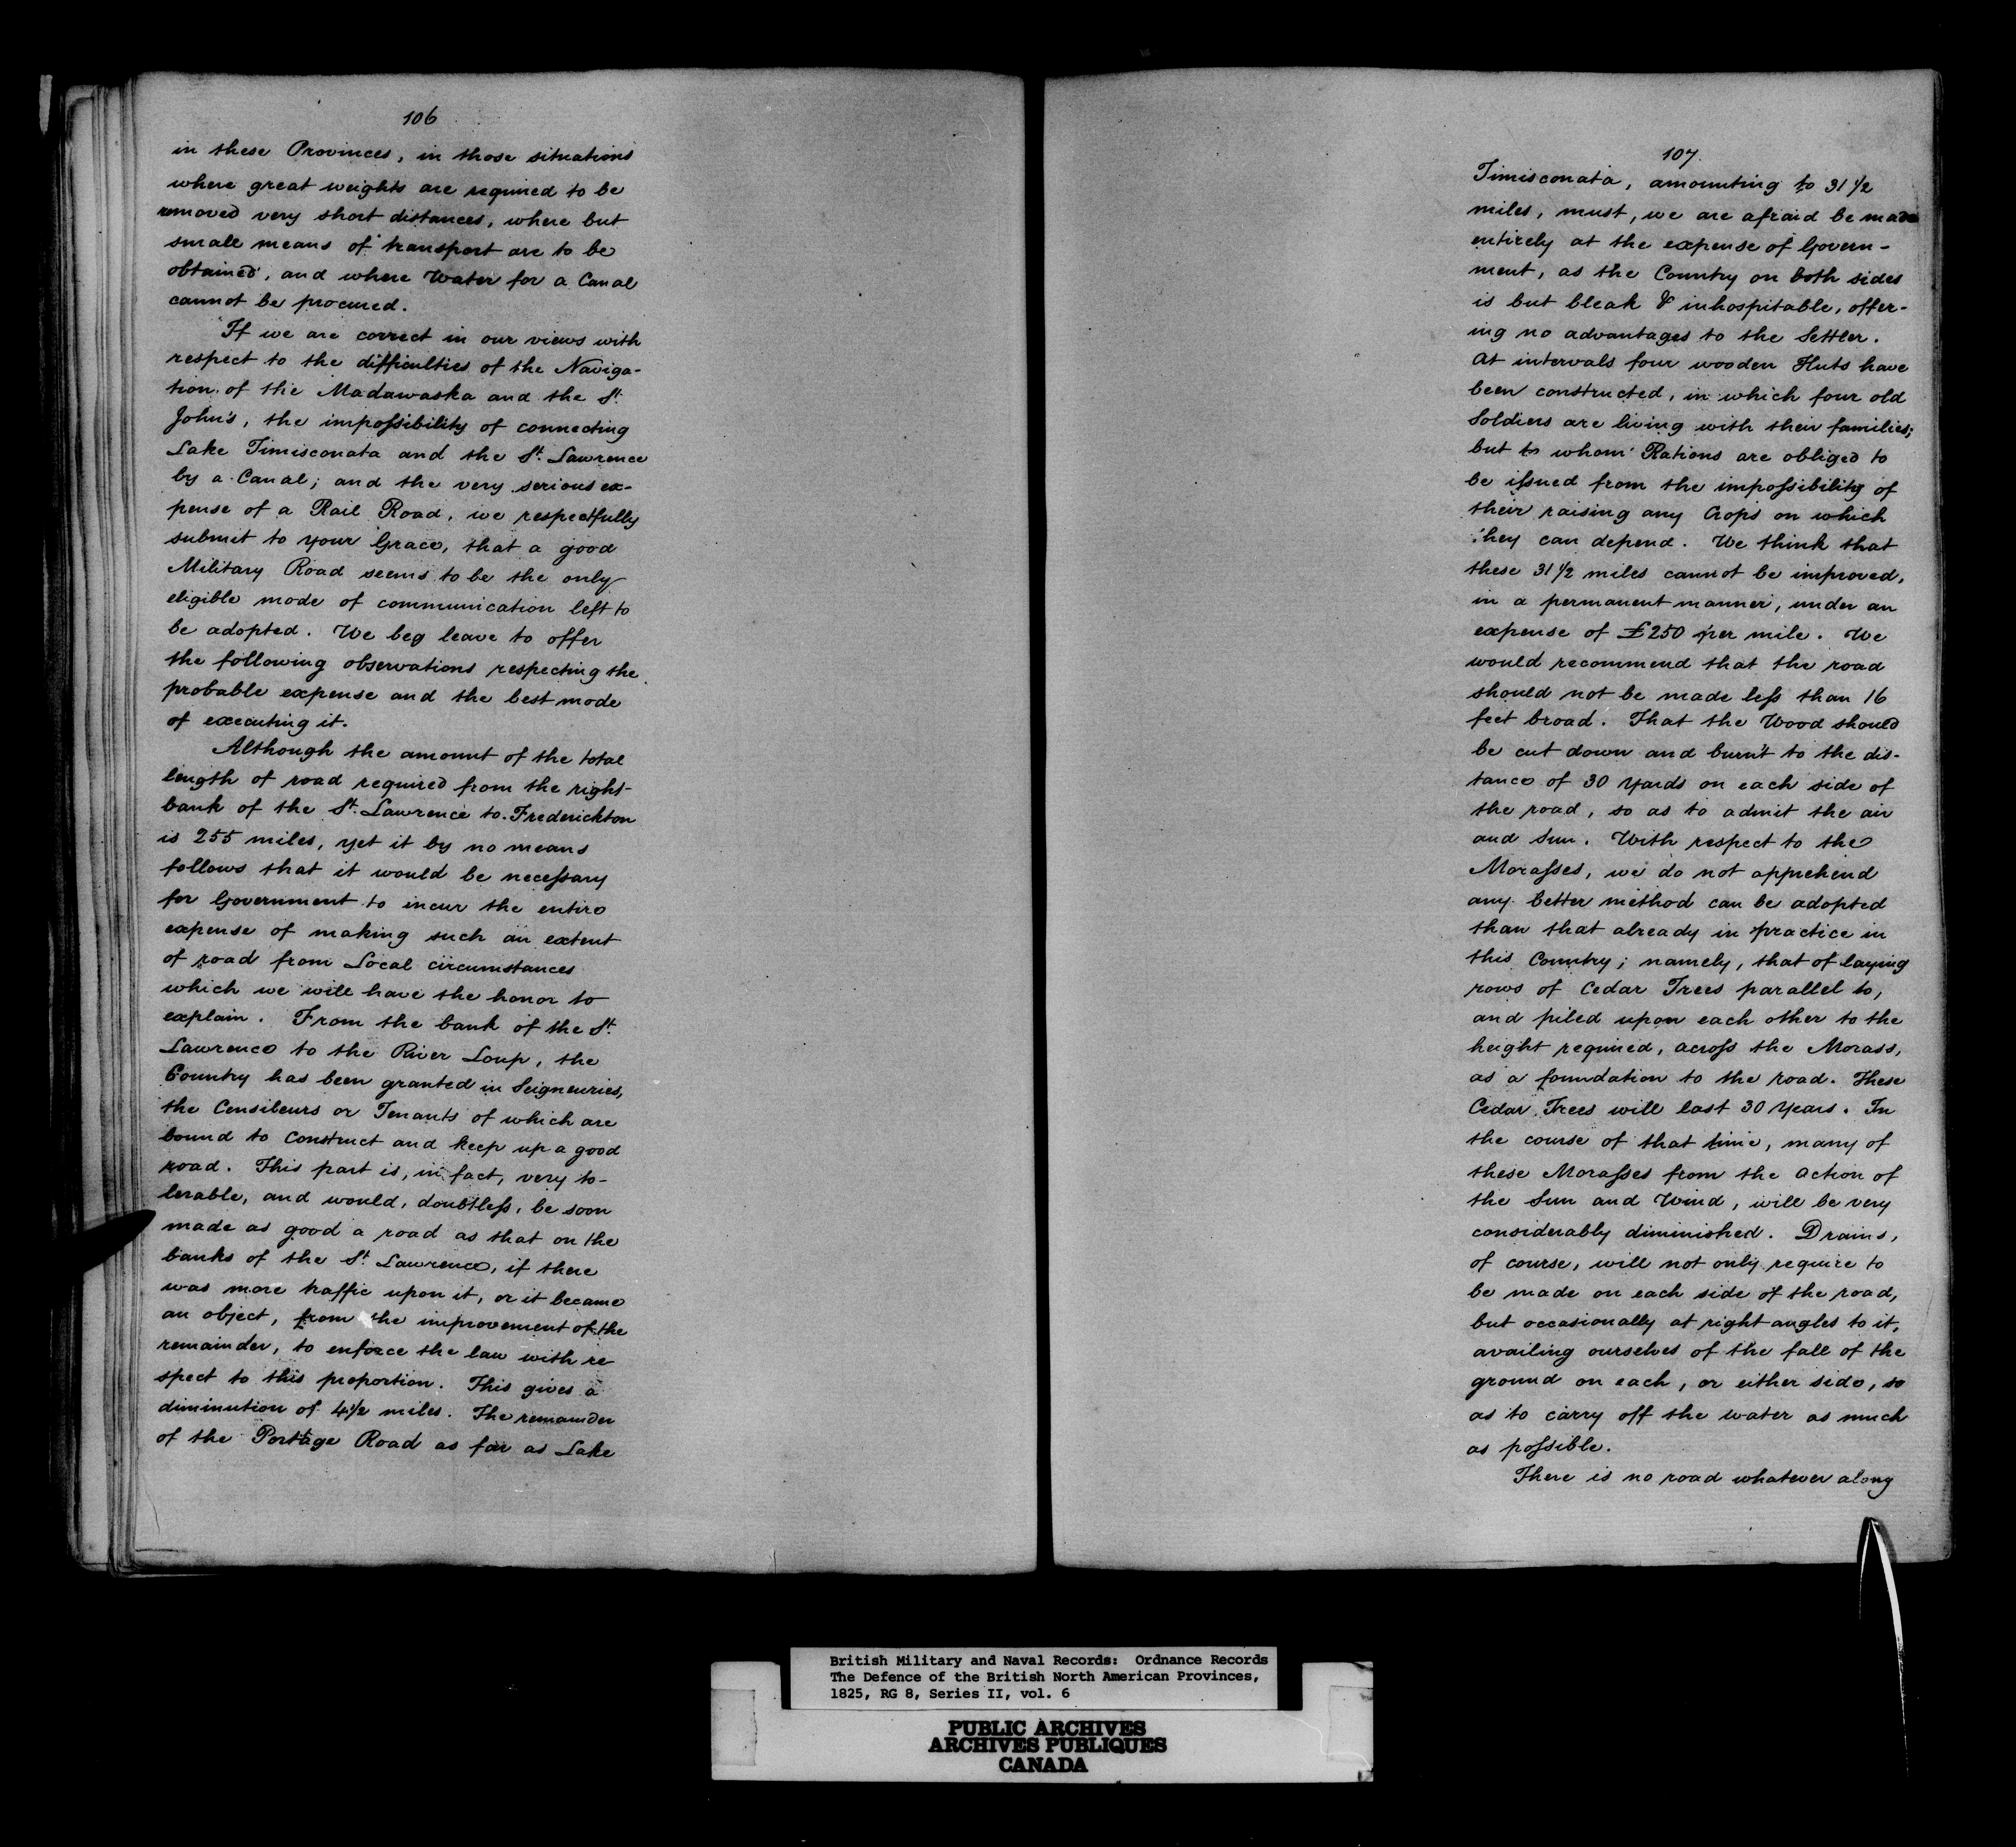 106
in these Provinces, in those situations
where great weights are required to be
removed very short distances, where but
small means of transport are to be
obtained, and where Water for a Canal
cannot be procured.
If we are correct in our views with
respect to the difficulties of the Naviga-
tion of the Madawaska and the St.
John's, the impoſsibility of connecting
Lake Timisconata and the St. Lawrence
by a Canal; and the very serious ex-
pense of a Rail Road, we respectfully
submit to your Grace, that a good
Military Road seems to be the only
eligible mode of communication left to
be adopted. We beg leave to offer
the following observations respecting the
probable expense and the best mode
of executing it.
Although the amount of the total
length of road required from the right
bank of the St. Lawrence to Frederickton
is 255 miles, yet it by no means
follows that it would be neceſsary
for Government to incur the entire
expense of making such an extent
of road from Local circumstances
which we will have the honor to
explain. From the bank of the St.
Lawrence to the River Loup, the
Country has been granted in Seigneuries,
the Censiteurs or Tenants of which are
bound to construct and keep up a good
road. This part is, in fact, very to-
lerable, and would, doubtleſs, be soon
made as good a road as that on the
banks of the St. Lawrence, if there
was more traffic upon it, or it became
an object, from the improvement of the
remainder, to enforce the law with re
spect to this proportion. This gives a
diminution of 4½ miles. The remainder
of the Portage Road as far as Lake
107.
Timisconata, amounting to 31 1/2
miles, must, we are afraid be made
entirely at the expense of Govern-
ment, as the Country on both sides
is but bleak & inhospitable, offer-
ing no advantages to the Settler.
At intervals four wooden Huts have
been constructed, in which four old
Soldiers are living with their families;
but to whom Rations are obliged to
be iſsued from the impoſsibility of
their raising any Crops on which
they can depend. We think that
these 31 1/2 miles cannot be improved,
in a permanent manner, under an
expense of £250 per mile. We
would recommend that the road
should not be made leſs than 16
feet broad. That the Wood should
be cut down and burn't to the dis-
tance of 30 Yards on each side of
the road, so as to admit the air
and Sun. With respect to the
Moraſses, we do not apprehend
any better method can be adopted
than that already in practice in
this Country; namely, that of laying
rows of Cedar Trees parallel to,
and piled upon each other to the
height required, acroſs the Morass,
as a foundation to the road. These
Cedar Trees will last 30 Years. In
the course of that time, many of
these Moraſses from the action of
the Sun and Wind, will be very
considerably diminished. Drains,
of course, will not only require to
be made on each side of the road,
but occasionally at right angles to it,
availing ourselves of the fall of the
ground on each, or either side, so
as to carry off the water as much
as poſsible.
There is no road whatever along
British Military and Naval Records: Ordnance Records
The Defence of the British North American Provinces,
1825, RG 8, Series II, vol. 6
PUBLIC ARCHIVES
ARCHIVES PUBLIQUES
CANADA